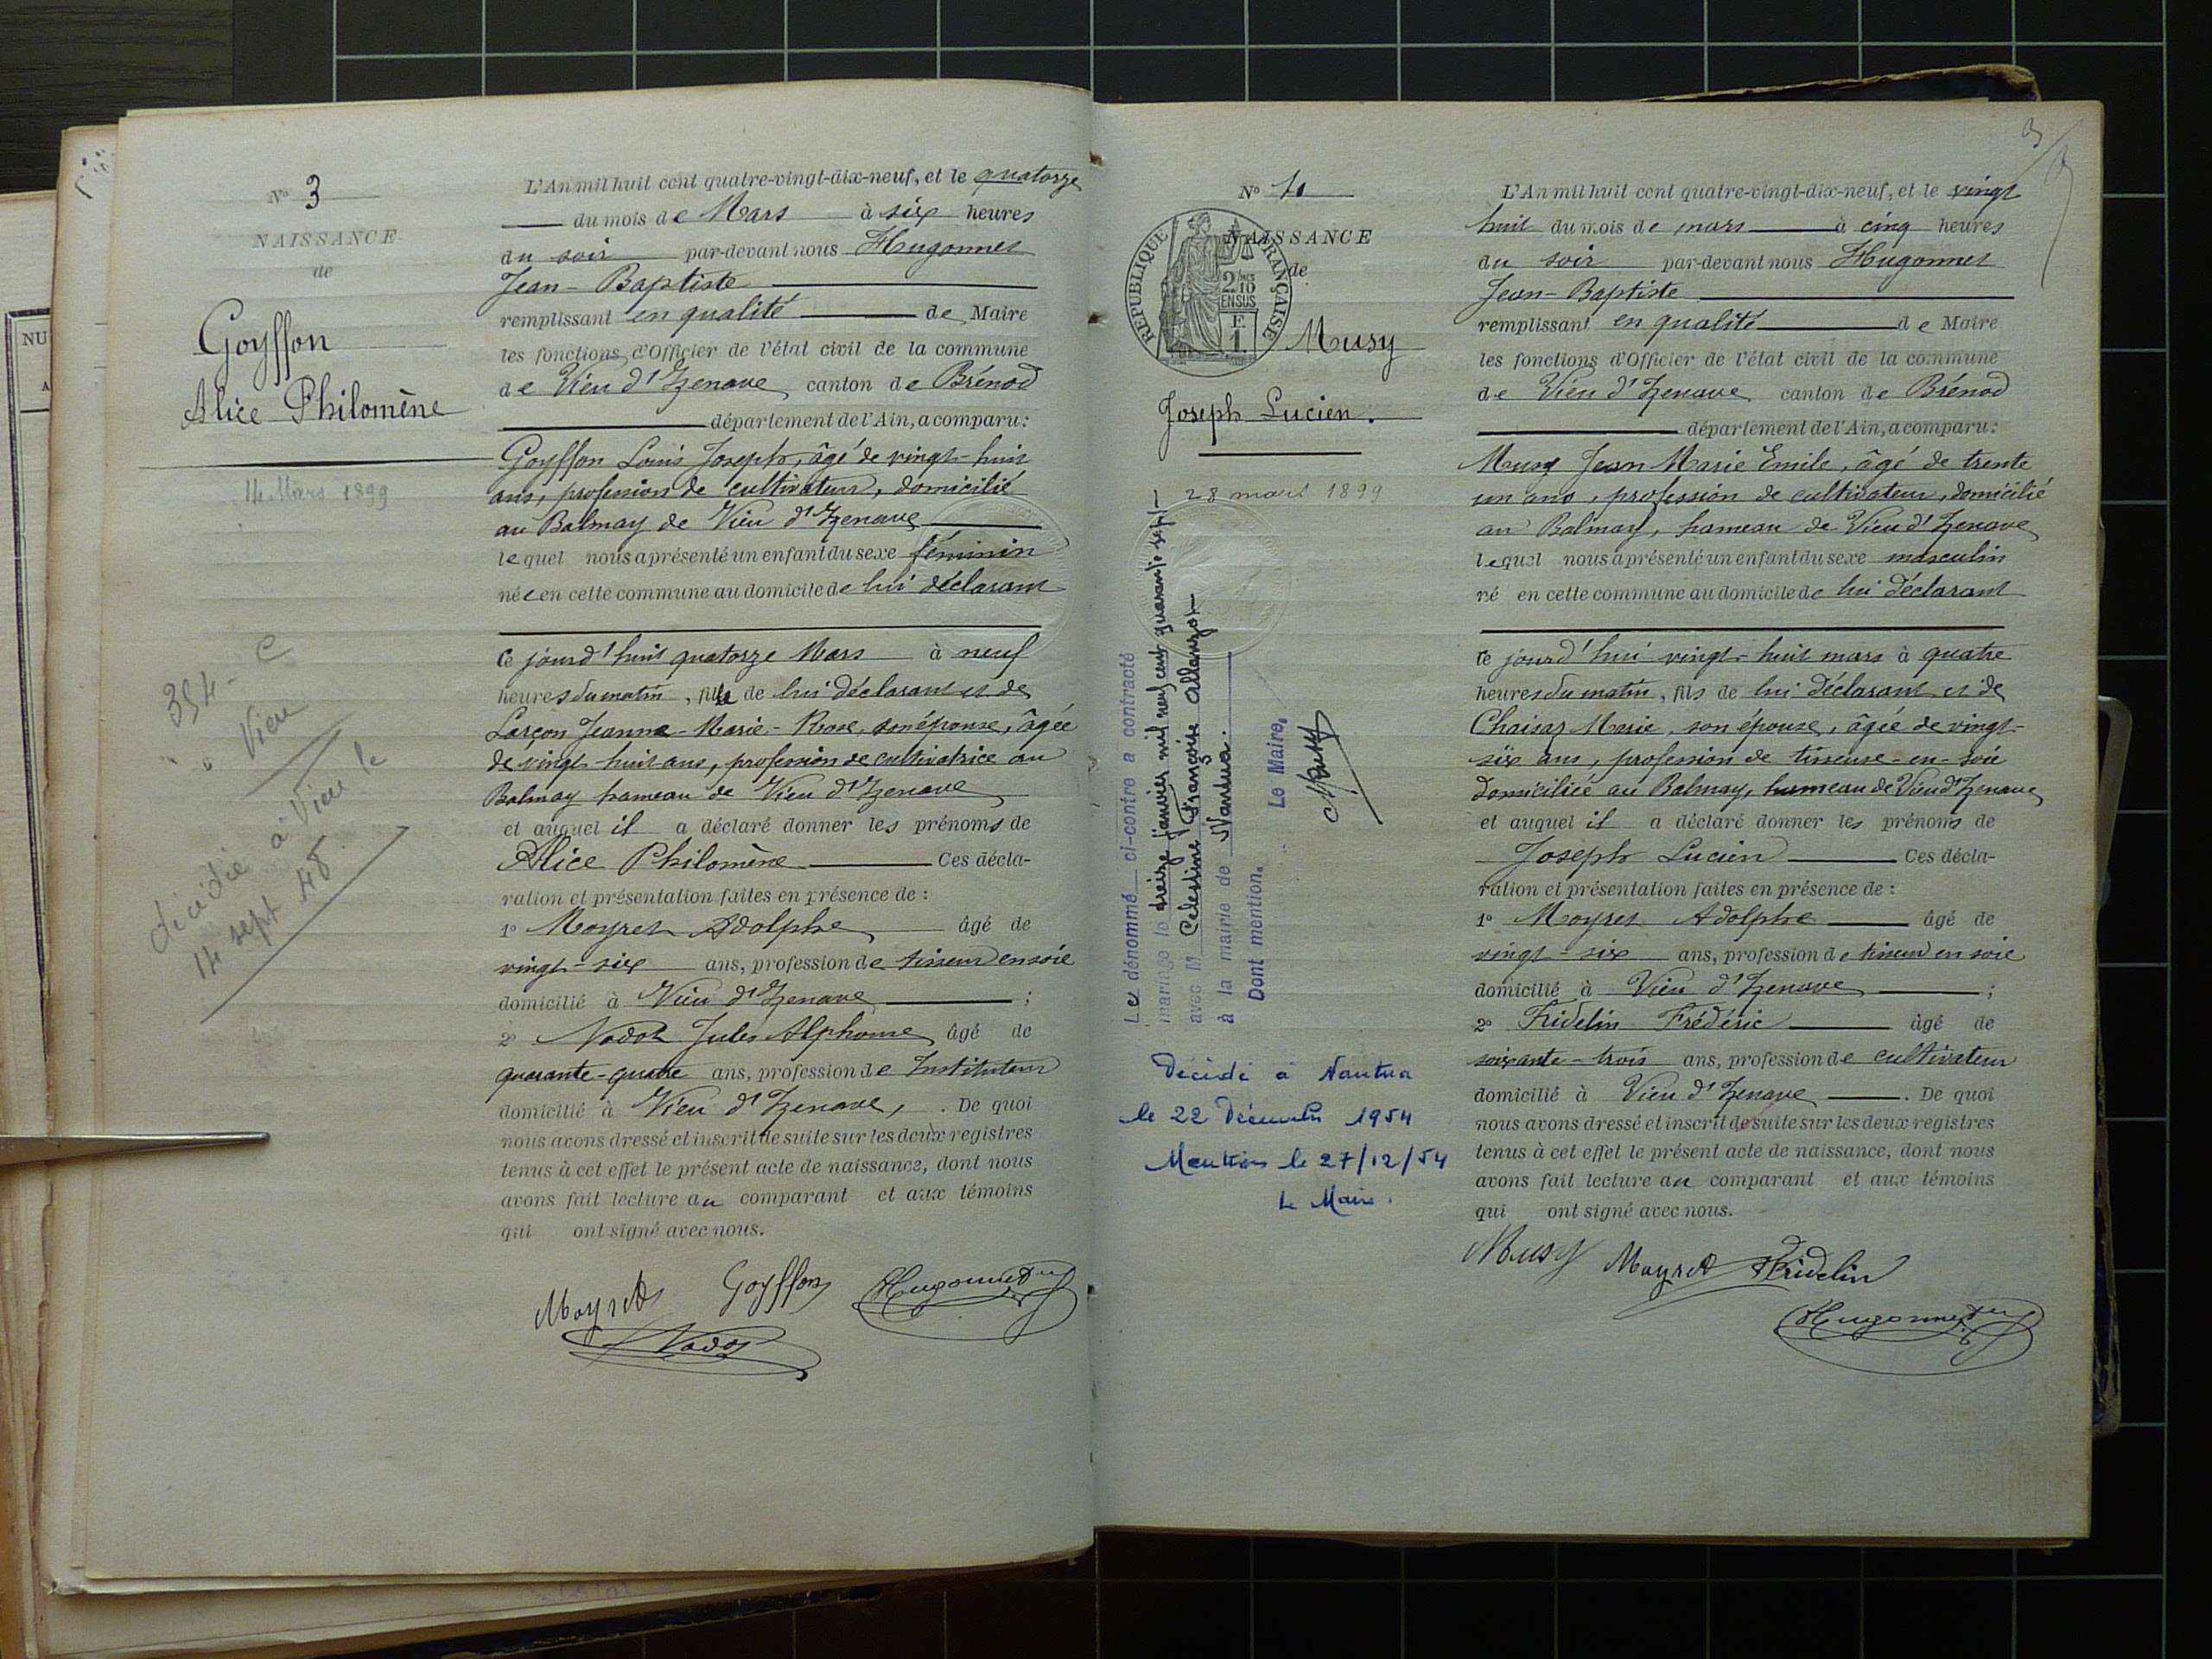 N° 3
NAISSANCE
de
Goyffon
Alice Philomène
14 Mars 1899
394- C
Vieu
décédée à Vieu le
14 sept 48
L'An mil huit cent quatre-vingt-dix-neuf, et le quatorze
du mois de Mars à six heures
du soir par-devant nous Hugonnet
Jean-Baptiste
remplissant en qualité de Maire
les fonctions d'Officier de l'état civil de la commune
de Vieu d'Izenave canton de Brénod
département de l'Ain, a comparu:
Goyffon Louis Joseph, âgé de vingt-huit
ans, profession de cultivateur, domicilié
au Balmay de Vieu d'Izenave
lequel nous a présenté un enfant du sexe féminin
née en cette commune au domicile de lui déclarant
ce jourd'hui quatorze Mars à neuf
heures du matin, fille de lui déclarant et de
Larçon Jeanne-Marie-Rose, son épouse, âgée
de vingt huit ans, profession de cultivatrice au
Balmay hameau de Vieu d'Izenave
et auquel il a déclaré donner les prénoms de
Alice Philomène Ces décla-
ration et présentation faites en présence de :
1° Moyret Adolphe âgé de
vingt-six ans, profession de tisseur en soie
domicilié à Vieu d'Izenave ;
2° Nodot Jules Alphonse âgé de
quarante-quatre ans, profession de Instituteur
domicilié à Vieu d'Izenave, . De quoi
nous avons dressé et inscrit de suite sur les deux registres
tenus à cet effet le présent acte de naissance, dont nous
avons fait lecture au comparant et aux témoins
qui ont signé avec nous.
Moyret Goyffon Hugonnet
Nodot
3
N°
NAISSANCE
de
RÉPUBLIQUE FRANÇAISE
2/10 EN SUS
Musy
Joseph Lucien.
28 mars 1899
Le dénommé ci-contre a contracté
mariage le treize janvier mil neuf cent quarante sept
avec M Célestine Françoise
à la mairie de Nantua.
Dont mention.
Le Maire,
Musy
Décédé à Nantua
le 22 Décembre 1954
Mention le 27/12/54
Le Maire.
L'An mil huit cent quatre-vingt-dix-neuf, et le vingt
huit du mois de mars à cinq heures
du soir par-devant nous Hugonnet
Jean-Baptiste
remplissant en qualité de Maire
les fonctions d'Officier de l'état civil de la commune
de Vieu d'Izenave canton de Brénod
département de l'Ain, a comparu:
Musy Jean Marie Emile, âgé de trente
un ans, profession de cultivateur, domicilié
au Balmay, hameau de Vieu d'Izenave
lequel nous a présenté un enfant du sexe masculin
né en cette commune au domicile de lui déclarant
ce jourd'hui vingt-huit mars à quatre
heures du matin, fils de lui déclarant et de
Chaisaz Marie, son épouse, âgée de vingt-
six ans, profession de tisseuse-en-soie
domiciliée au Balmay, hameau de Vieu d'Izenave
et auquel il a déclaré donner les prénoms de
Joseph Lucien Ces décla-
ration et présentation faites en présence de :
1° Moyret Adolphe âgé de
vingt-six ans, profession de tisseur en soie
domicilié à Vieu d'Izenave ;
2° Fridelin Frédéric âgé de
soixante-trois ans, profession de cultivateur
domicilié à Vieu d'Izenave . De quoi
nous avons dressé et inscrit de suite sur les deux registres
tenus à cet effet le présent acte de naissance, dont nous
avons fait lecture au comparant et aux témoins
qui ont signé avec nous.
Musy Moyret Fridelin
Hugonnet